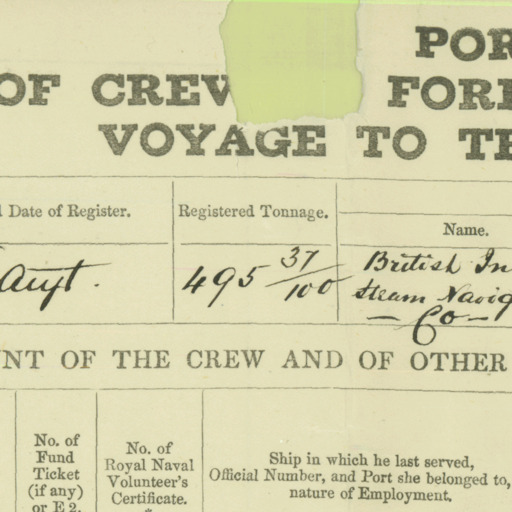 POR
OF CREW FORE
VOYAGE TO TE
Date of Register. Registered Tonnage. Name.
495 37/100 British In
Steam Navig
Co
NT OF THE CREW AND OF OTHER
No. of
Fund
Ticket
(if any)
or E 2.
No. of
Royal Naval
Volunteer's
Certificate.
*
Ship in which he last served,
Official Number, and Port she belonged to,
nature of Employment.